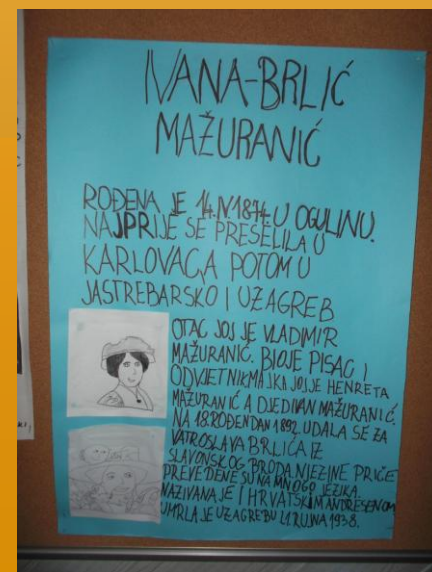 IVANA-BRLIĆ
MAŽURANIĆ
ROĐENA JE 14.IV.1874. U OGULINU.
NAJPRIJE SE PRESELILA U
KARLOVAC, A POTOM U
JASTREBARSKO I U ZAGREB
OTAC JOJ JE VLADIMIR
MAŽURANIĆ. BIO JE PISAC I
ODVJETNIK MAJKA JOJ JE HENRETA
MAŽURANIĆ A DJED IVAN MAŽURANIĆ.
NA 18. ROĐENDAN 1892. UDALA SE ZA
VATROSLAVA BRLIĆA IZ
SLAVONSKOG BRODA. NJEZINE PRIČE
PREVEDENE SU NA MNOGO JEZIKA.
NAZIVANA JE I HRVATSKIM ANDRESENOM
UMRLA JE U ZAGREBU 21. RUJNA 1938.